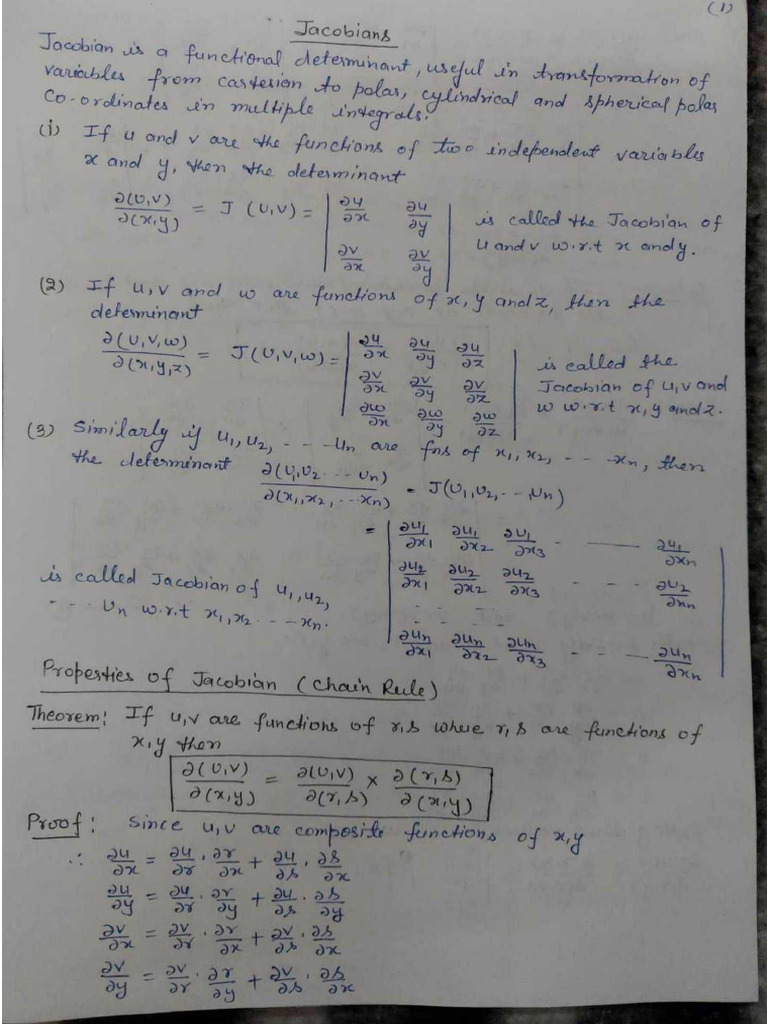 (1)
Jacobians
Jacobian is a functional determinant, useful in transformation of
variables from cartesian to polar, cylindrical and spherical polar
co-ordinates in multiple integrals.
(i) If u and v are the functions of two independent variables
x and y, then the determinant
∂(u,v)/∂(x,y) = J (u,v) = | ∂u/∂x ∂u/∂y | is called the Jacobian of
| ∂v/∂x ∂v/∂y | u and v w.r.t x and y.
(2) If u,v and w are functions of x, y and z, then the
determinant
∂(u,v,w)/∂(x,y,z) = J(u,v,w) = | ∂u/∂x ∂u/∂y ∂u/∂z | is called the
| ∂v/∂x ∂v/∂y ∂v/∂z | Jacobian of u,v and
| ∂w/∂x ∂w/∂y ∂w/∂z | w w.r.t x,y and z.
(3) Similarly if u₁,u₂, - - - - uₙ are fns of x₁,x₂, - - - xₙ, then
the determinant ∂(u₁,u₂ - - - uₙ)/∂(x₁,x₂, - - - xₙ) = J(u₁,u₂, - - -,uₙ)
= | ∂u₁/∂x₁ ∂u₁/∂x₂ ∂u₁/∂x₃ - - - ∂u₁/∂xₙ |
is called Jacobian of u₁,u₂, | ∂u₂/∂x₁ ∂u₂/∂x₂ ∂u₂/∂x₃ - - - ∂u₂/∂xₙ |
- - - uₙ w.r.t x₁,x₂ - - - xₙ. | - - - - - |
| ∂uₙ/∂x₁ ∂uₙ/∂x₂ ∂uₙ/∂x₃ - - - ∂uₙ/∂xₙ |
Properties of Jacobian (Chain Rule)
Theorem: If u,v are functions of r,s where r,s are functions of
x,y then
∂(u,v)/∂(x,y) = ∂(u,v)/∂(r,s) × ∂(r,s)/∂(x,y)
Proof: Since u,v are composite functions of x,y
∴ ∂u/∂x = ∂u/∂r · ∂r/∂x + ∂u/∂s · ∂s/∂x
∂u/∂y = ∂u/∂r · ∂r/∂y + ∂u/∂s · ∂s/∂y
∂v/∂x = ∂v/∂r · ∂r/∂x + ∂v/∂s · ∂s/∂x
∂v/∂y = ∂v/∂r · ∂r/∂y + ∂v/∂s · ∂s/∂x